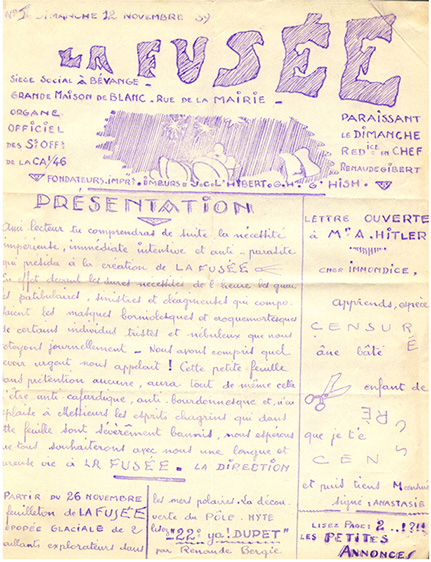 N° 1. DIMANCHE 12 NOVEMBRE 39
LA FUSÉE
SIEGE SOCIAL À BÉVANGE -
GRANDE MAISON DE BLANC - RUE DE LA MAIRIE -
ORGANE
OFFICIEL
DES S/OFF/
DE LA CA/46
PARAISSANT
LE DIMANCHE
RED ice EN CHEF
RENAUDE GIBERT
FONDATEURS
PRESENTATION
Ami lecteur tu comprendras de suite la nécessité
impérieuse, immédiate intensive et anti-parasite
qui présida à la création de LA FUSÉE
En effet devant les dures nécessités de l'heure
patibulaires, sinistres et
les masques et croquemortesques
de certains individus tristes et nébuleux que nous
côtoyons journellement - Nous avons compris quel
devoir urgent nous appelait ! Cette petite feuille
sans prétention aucune, aura tout de même celle
d'être, anti-cafardique, anti-bourdonnesque et, n'en
déplaise à Messieurs les esprits chagrins qui dans
cette feuille sont sévèrement bannis, nous espérons
que tous souhaiterons avec nous une longue et
heureuse vie à LA FUSÉE. LA DIRECTION
PARTIR DU 26 NOVEMBRE
feuilleton de LA FUSÉE
ÉPOPÉE GLACIALE DE 2
vaillants explorateurs dans
les mers polaires. La décou
verte du PÔLE-MYTE
lisez "22° ya! DUPET"
par Renaude Bergie
LETTRE OUVERTE
à Mr A. HITLER
CHER IMMONDICE,
apprends, espèce
CENSURÉ
âne bâté
enfant de
CENSURÉ
que je t'é
CENS
et puis tiens
signé : ANASTASIE
LISEZ PAGE: 2...!?!!!
LES PETITES
ANNONCES